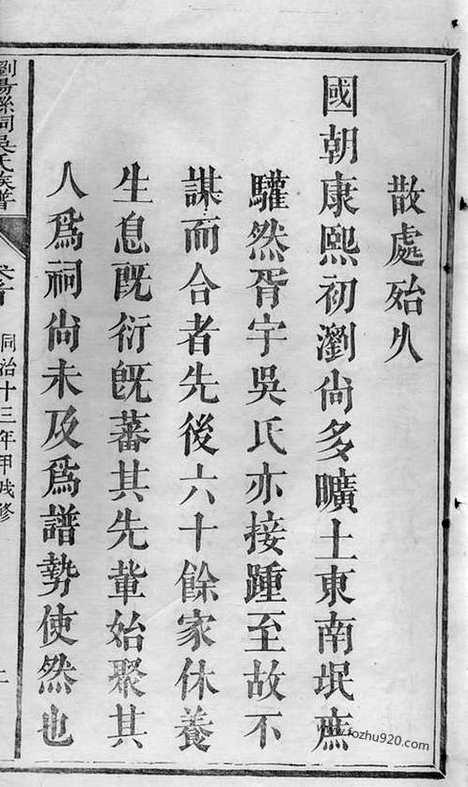 散處殆久
國朝康熙初瀏尚多曠土東南氓廡
驩然胥宇吳氏亦接踵至故不
謀而合者先後六十餘家休養
生息既衍既蕃其先輩始聚其
人為祠尚未及為譜勢使然也
瀏陽縣祠吳氏族譜
卷首
同治十三年甲戌修
www.fozhu920.com